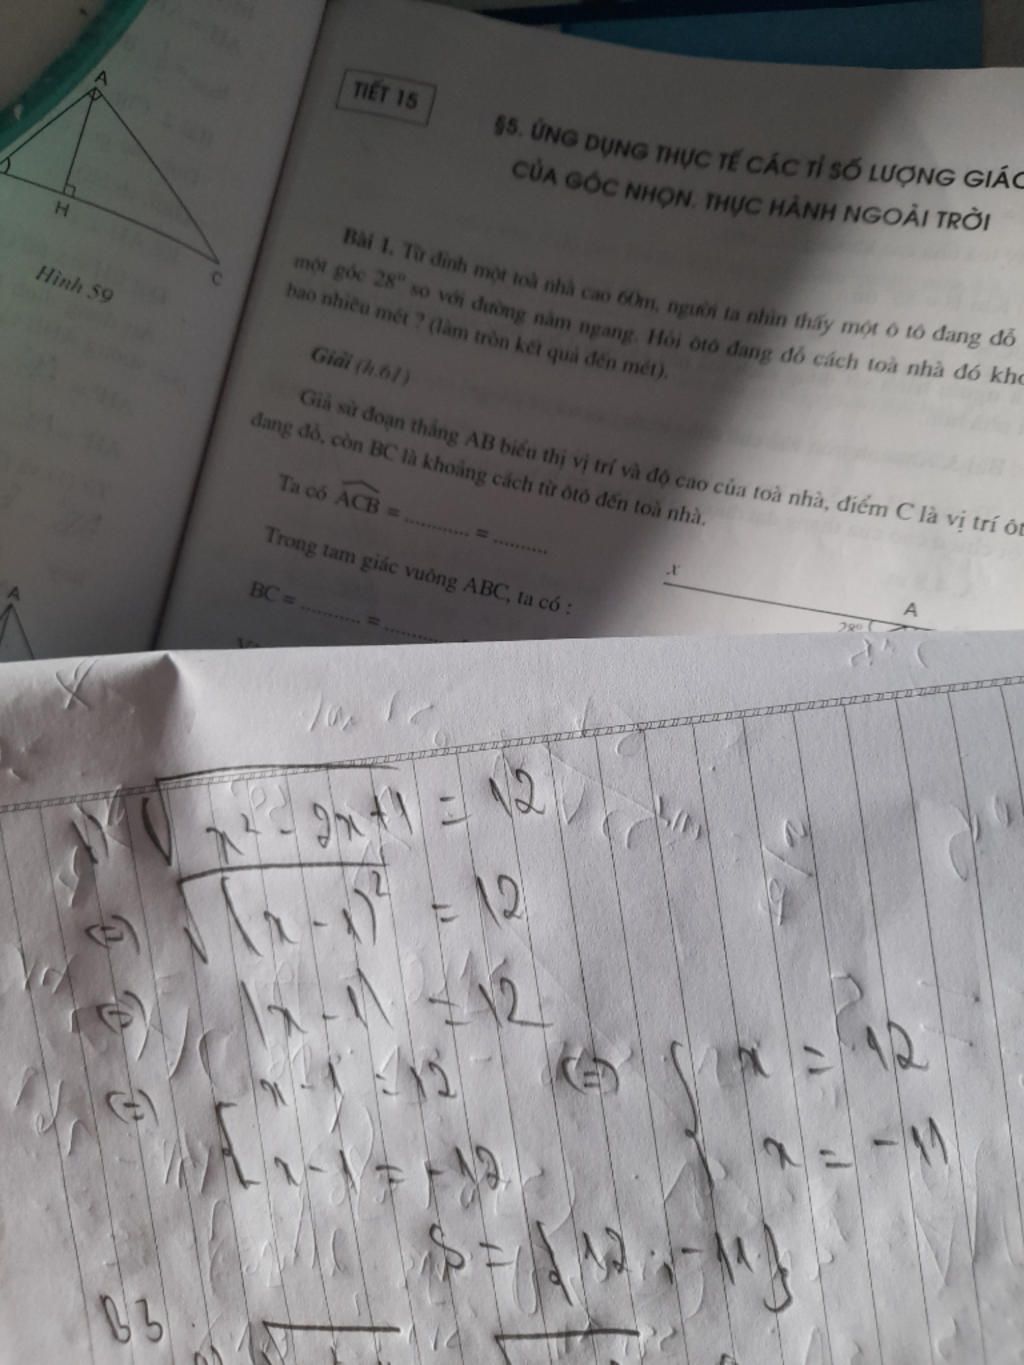 A
H
C
Hình 59
A
TIẾT 15
§5. ỨNG DỤNG THỰC TẾ CÁC TỈ SỐ LƯỢNG GIÁC
CỦA GÓC NHỌN. THỰC HÀNH NGOÀI TRỜI
Bài 1. Từ đỉnh một toà nhà cao 60m, người ta nhìn thấy một ô tô đang đỗ
một góc 28° so với đường nằm ngang. Hỏi ôtô đang đỗ cách toà nhà đó kho
bao nhiêu mét ? (làm tròn kết quả đến mét).
Giải (h.61)
Giả sử đoạn thẳng AB biểu thị vị trí và độ cao của toà nhà, điểm C là vị trí ôt
đang đỗ, còn BC là khoảng cách từ ôtô đến toà nhà.
Ta có ACB = ........... = ..........
Trong tam giác vuông ABC, ta có :
BC = ........... = ...........
x
A
28°
√(x² - 2x + 1) = 12
(=) √((x - 1)²) = 12
(=) |x - 1| = 12
(=) { x - 1 = 12 (=) { x = 12
x - 1 = -12 x = -11
S = {12 ; -11}
B3